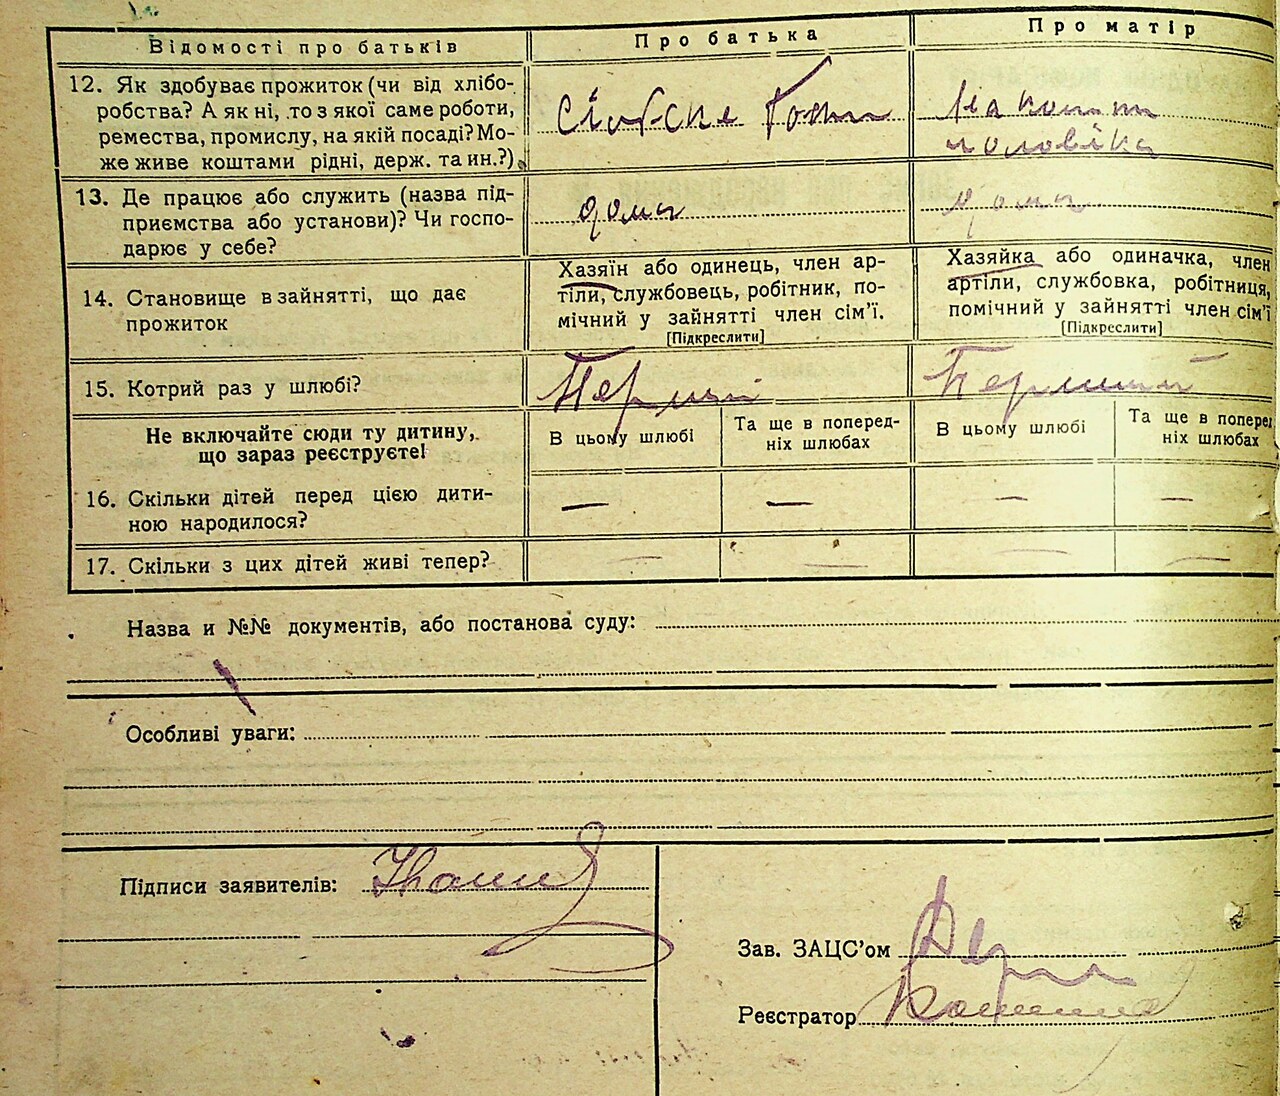 Відомості про батьків
Про батька
Про матір
12. Як здобуває прожиток (чи від хлібо-
робства? А як ні, то з якої саме роботи,
ремества, промислу, на якій посаді? Мо-
же живе коштами рідні, держ. та ин.?)
На кошти
чоловіка
13. Де працює або служить (назва під-
приємства або установи)? Чи госпо-
дарює у себе?
дома
дома
14. Становище в зайнятті, що дає
прожиток
Хазяїн або одинець, член ар-
тіли, службовець, робітник, по-
мічний у зайнятті член сім'ї.
[Підкреслити]
Хазяйка або одиначка, член
артіли, службовка, робітниця,
помічний у зайнятті член сім'ї
[Підкреслити]
15. Котрий раз у шлюбі?
Перший
Перший
Не включайте сюди ту дитину,
що зараз реєструєте!
В цьому шлюбі
Та ще в поперед-
ніх шлюбах
В цьому шлюбі
Та ще в поперед
ніх шлюбах
16. Скільки дітей перед цією дити-
ною народилося?
— — — —
17. Скільки з цих дітей живі тепер?
— — —
Назва и №№ документів, або постанова суду:
Особливі уваги:
Підписи заявителів:
Зав. ЗАЦС'ом
Реєстратор